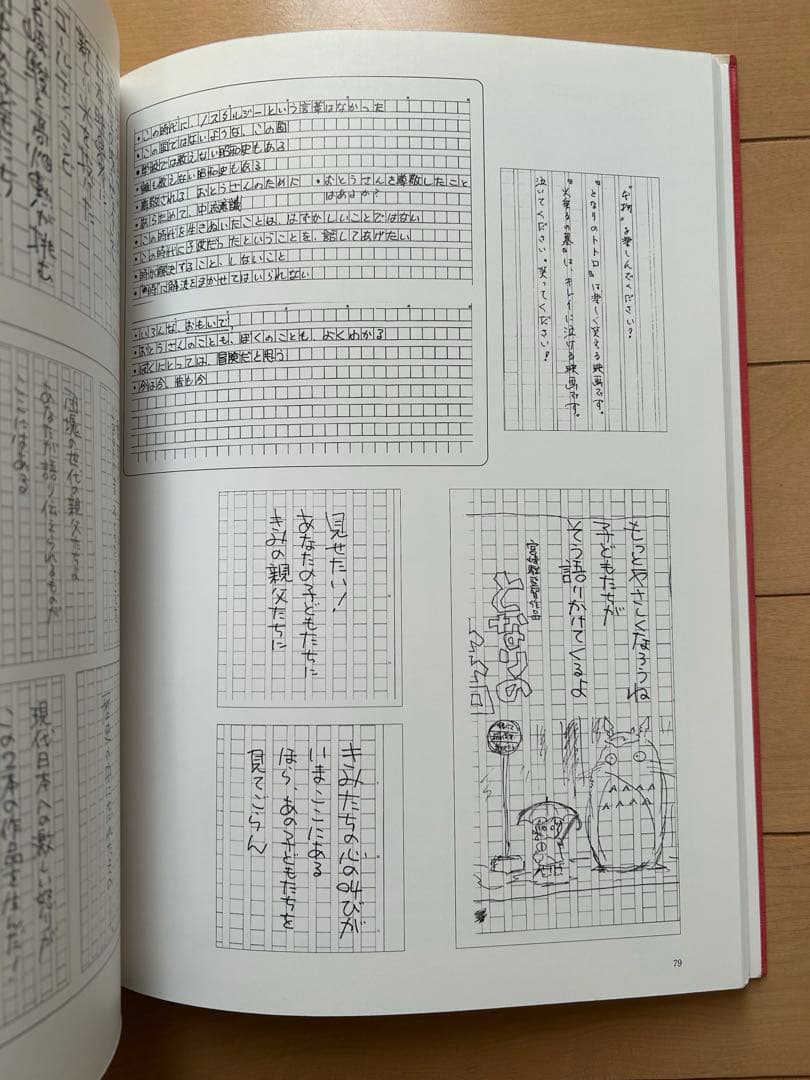 ・この時代に、ノスタルジーという言葉はなかった
・この国ではないような、この国
・学校では教えない昭和史もある
・親も教えない昭和史もある
・尊敬される、おとうさんのために
・おとうさんを尊敬したこと
はあるか?
・あらためて、中流意識
・この時代を生きぬいたことは、はずかしいことではない
・この時代に子供だったということを、話してあげたい
・時が解決すること、しないこと
・時に解決をまかせてはいられない
・いろんな、おもいで、
・おとうさんのことも、ぼくのことも、よくわかる
・ぼくにとっては、冒険だと思う
・今は今、昔も今
を楽しんでください?
『となりのトトロ』は楽しく笑える映画です。
『火垂るの墓』は、キレイに泣ける映画です。
泣いてください。笑ってください!
見せたい!
あなたの子どもたちに
きみの親父たちに
もっとやさしくなろうね
子どもたちが
そう語りかけてくるよ
宮崎駿監督作品
となりの
トトロ
きみたちの心の叫びが
いまここにある
ほら、あの子どもたちを
見てごらん
79
団塊の世代の親父たちよ
あなたが語り伝えられるものが
ここにはある
現代日本への激しい怒りが
この2本の作品を生んだ